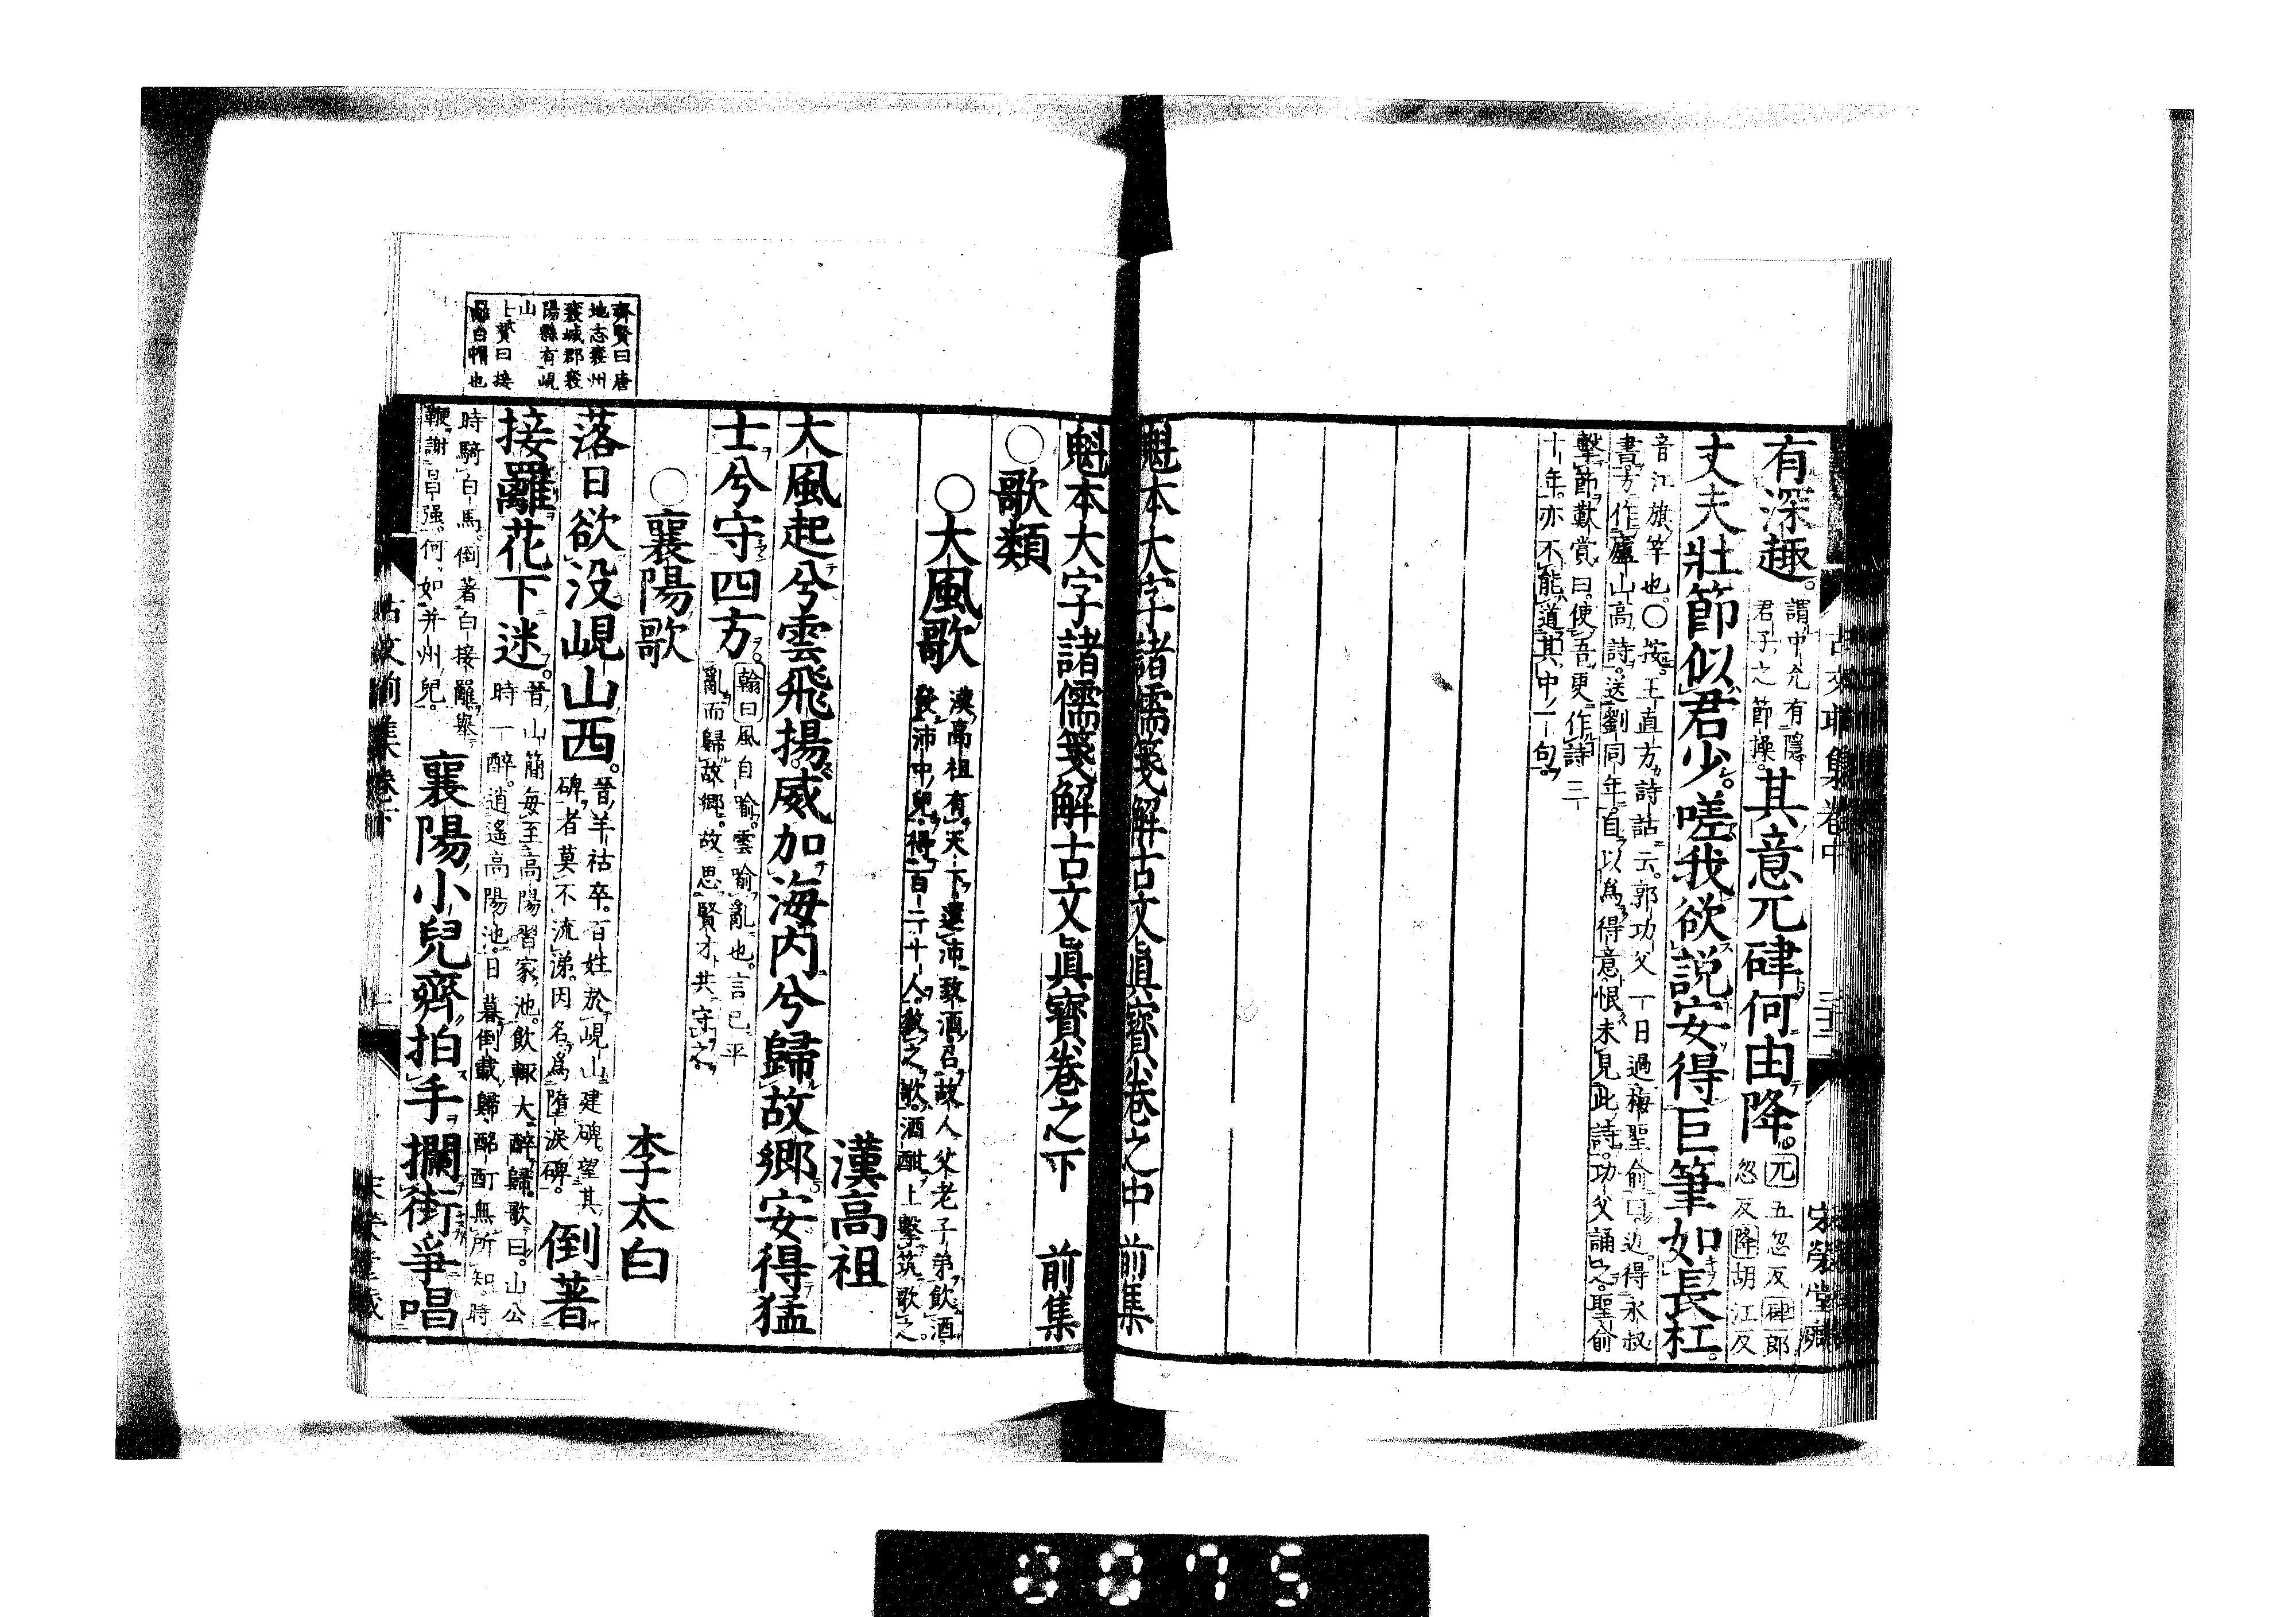 古文前集卷中
三十二
有深趣。謂中允有隱君子之節操。其意兀硉何由降。兀五忽反硉郎忽反降胡江反
丈夫壯節似君少。嗟我欲說安得巨筆如長杠。
音江旗竿也。○按。王直方詩話云。郭功父一日過梅聖俞曰。近得永叔
書。方作廬山高詩。送劉同年。自以爲得意。恨未見此詩。功父誦之。聖俞
擊節歎賞曰。使吾更作詩三
十年。亦不能道其中一句。
魁本大字諸儒箋解古文眞寶卷之中 前集
魁本大字諸儒箋解古文眞寶卷之下 前集
○歌類
○大風歌 漢高祖有天下。還沛。致酒。召故人父老子弟飲酒。發沛中兒。得百二十人。敎之歌。酒酣。上擊筑歌之。
漢高祖
大風起兮雲飛揚。威加海内兮歸故鄉安得猛
士兮守四方。翰曰風自喻。雲喻亂也。言已平亂而歸故鄉。故思賢才共守之。
○襄陽歌 李太白
落日欲没峴山西。晉羊祜卒。百姓於峴山建碑。望其碑者莫不流涕。因名爲墮淚碑。倒著
接䍦花下迷。晉山簡每至高陽習家池。飲輒大醉歸。歌曰。山公時一醉。逍遙高陽池。日暮倒載歸。酩酊無所知。時
時騎白馬。倒著白接䍦。舉鞭謝昌强。何如并州兒。襄陽小兒齊拍手攔街爭唱
齊賢曰唐
地志襄州
襄城郡襄
陽縣有峴
山
士贇曰接
䍦白帽也
古文前集卷下
0075